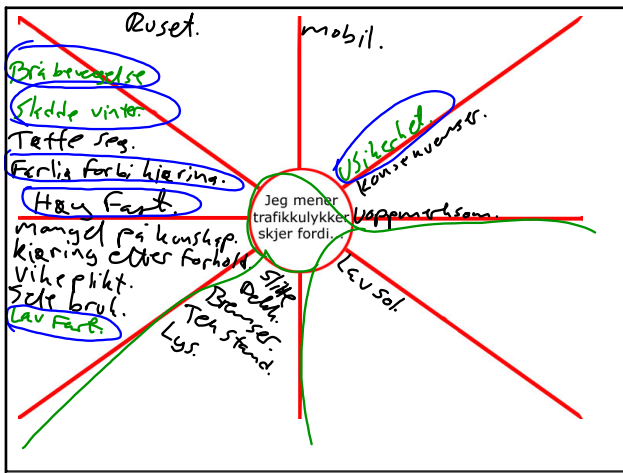 Ruset.
mobil.
Bråbevegelse
Skedde vinter.
Tøffe seg.
Farlig forbi kjøring.
Høy Fart.
mangel på kunskap.
kjøring etter forhold
Vikeplikt.
Sele bruk.
Lav Fart.
Usikerhet.
Konsekvenser.
Jeg mener
trafikkulykker
skjer fordi...
uoppmerksom.
Lav sol.
Slitte
Dekk.
Bremser.
Tek stand.
Lys.